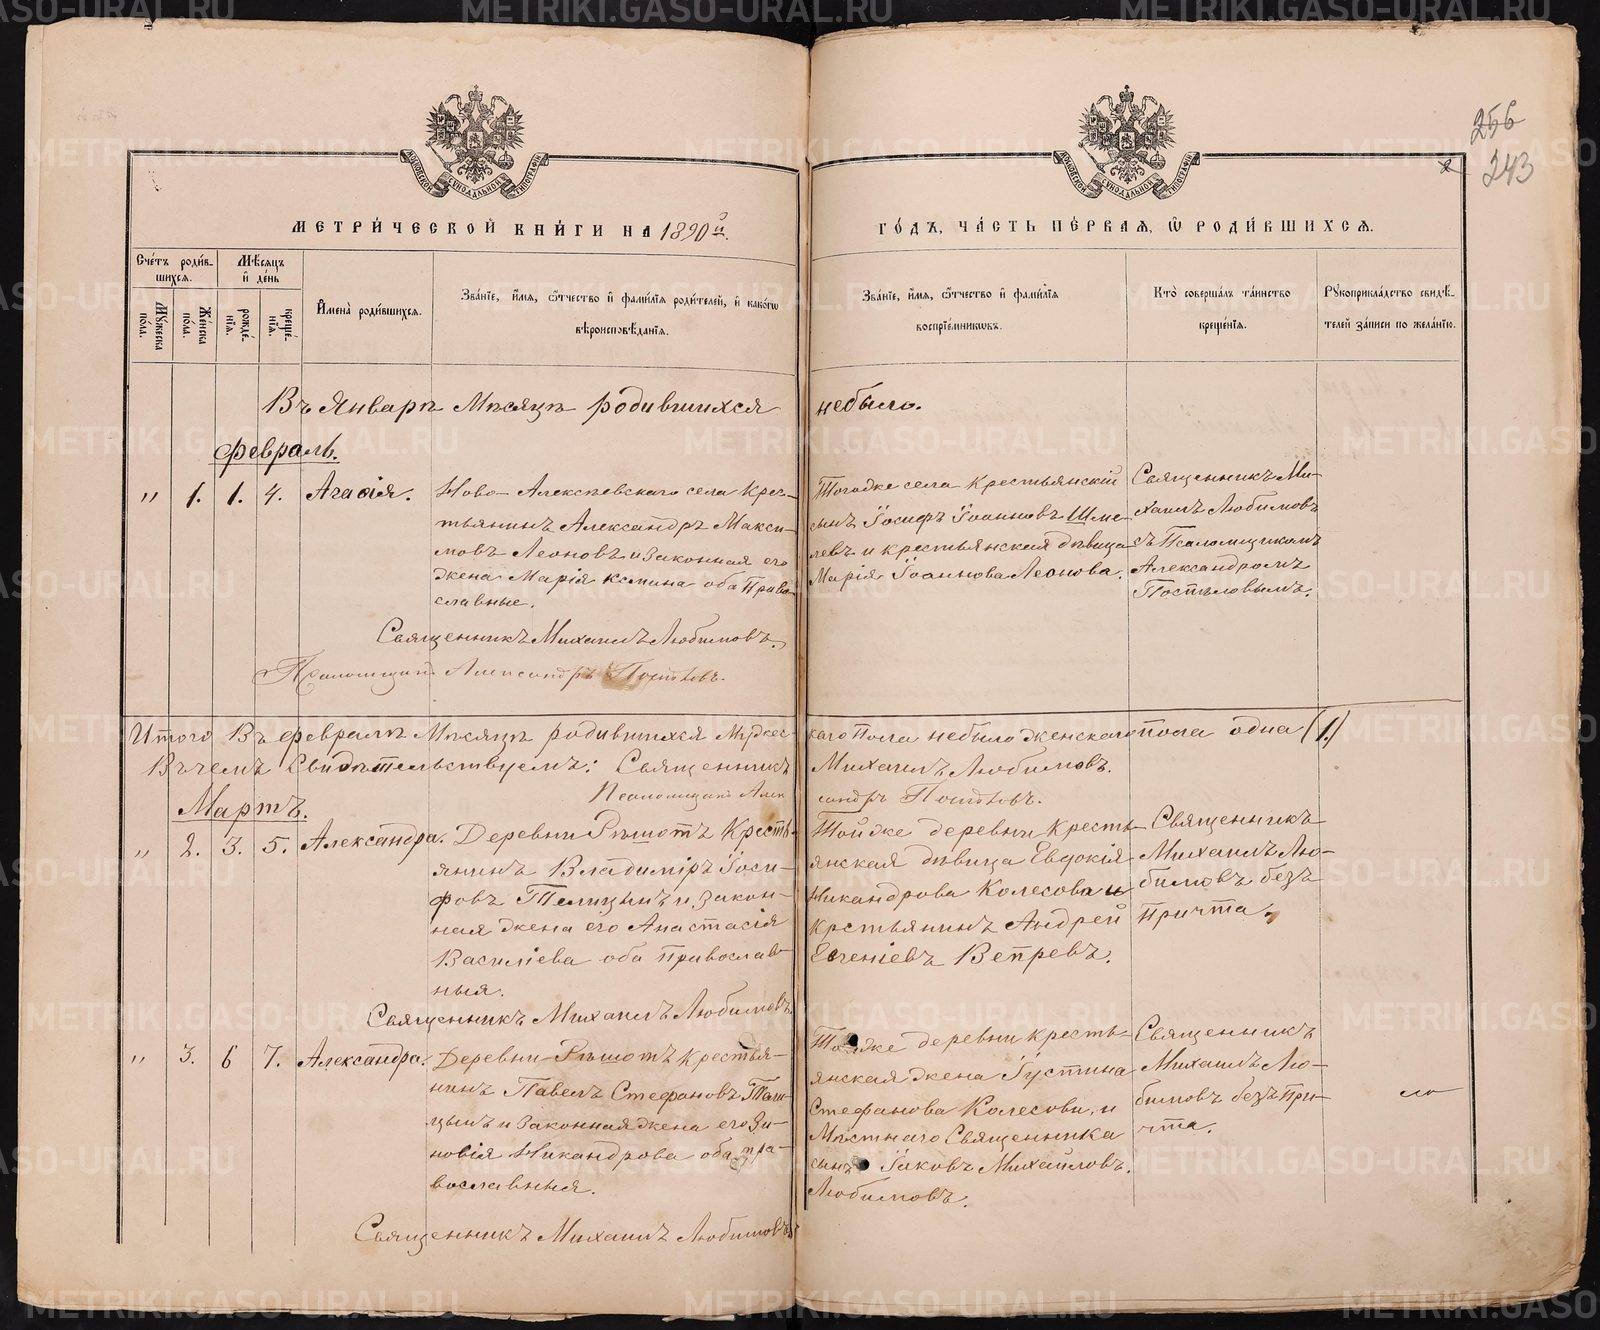 256
243
МЕТРИЧЕСКОЙ КНИГИ НА 1890й
ГОДЪ, ЧАСТЬ ПЕРВАЯ, Ѡ РОДИВШИХСЯ.
Счетъ родив-
шихся.
Мѣсяцъ
и день
Мужеска
пола.
Женска
пола.
рожде-
нія.
креще-
нія.
Имена родившихся.
Званіе, имя, отчество и фамилія родителей, и какогѡ
вѣроисповѣданія.
Званіе, имя, отчество и фамилія
воспріемникѡвъ.
Кто совершалъ таинство
крещенія.
Рукоприкладство свидѣ-
телей записи по желанію.
Въ Январѣ Мѣсяцѣ родившихся
небыло.
Февраль.
„ 1. 1. 4. Агаѳія.
Ново-Алексѣевскаго села Крес-
тьянинъ Александръ Макси-
мовъ Леоновъ и законная его
жена Марія оба Право-
славные.
Священникъ Михаилъ Любимовъ.
Псаломщикъ Александръ
Тогоже села Крестьянскій
сынъ Іосифъ Іоанновъ Шме-
левъ и крестьянская дѣвица
Марія Іоаннова Леонова.
Священникъ Ми-
хаилъ Любимовъ
съ Псаломщикомъ
Александромъ
Итого Въ Февралѣ Мѣсяцѣ родившихся Мужес-
каго Пола небыло женскаго пола одна (1.)
Въ чемъ Свидѣтельствуемъ: Священникъ
Михаилъ Любимовъ.
Псаломщикъ Алек
сандръ
Мартъ.
„ 2. 3. 5. Александра.
Деревни Рѣшотъ Кресть-
янинъ Владиміръ Іоси-
фовъ Телицынъ и закон-
ная жена его Анастасія
Василіева оба Православ-
ныя.
Священникъ Михаилъ Любимовъ.
Тойже деревни Кресть-
янская дѣвица Евдокія
Никандрова Колесова и
Крстьянинъ Андрей
Евгеніевъ Вепревъ.
Священникъ
Михаилъ Лю-
бимовъ безъ
Причта.
„ 3. 6 7. Александра.
Деревни Рѣшотъ Крестья-
нинъ Павелъ Стефановъ
цынъ и законная жена его Зи-
новія Никандрова оба пра-
вославныя.
Священникъ Михаилъ Любимовъ
Тойже деревни кресть-
янская жена Іустина
Стефанова Колесова, и
Мѣстнаго Священника
сынъ Іаковъ Михайловъ
Любимовъ.
Священникъ
Михаилъ Лю-
бимовъ безъ При-
чта.
METRIKI.GASO-URAL.RU